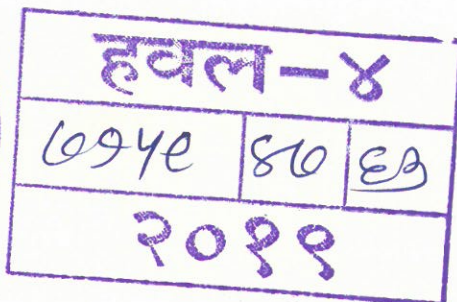 हवल-४
७१५९ ४७ ६३
२०११